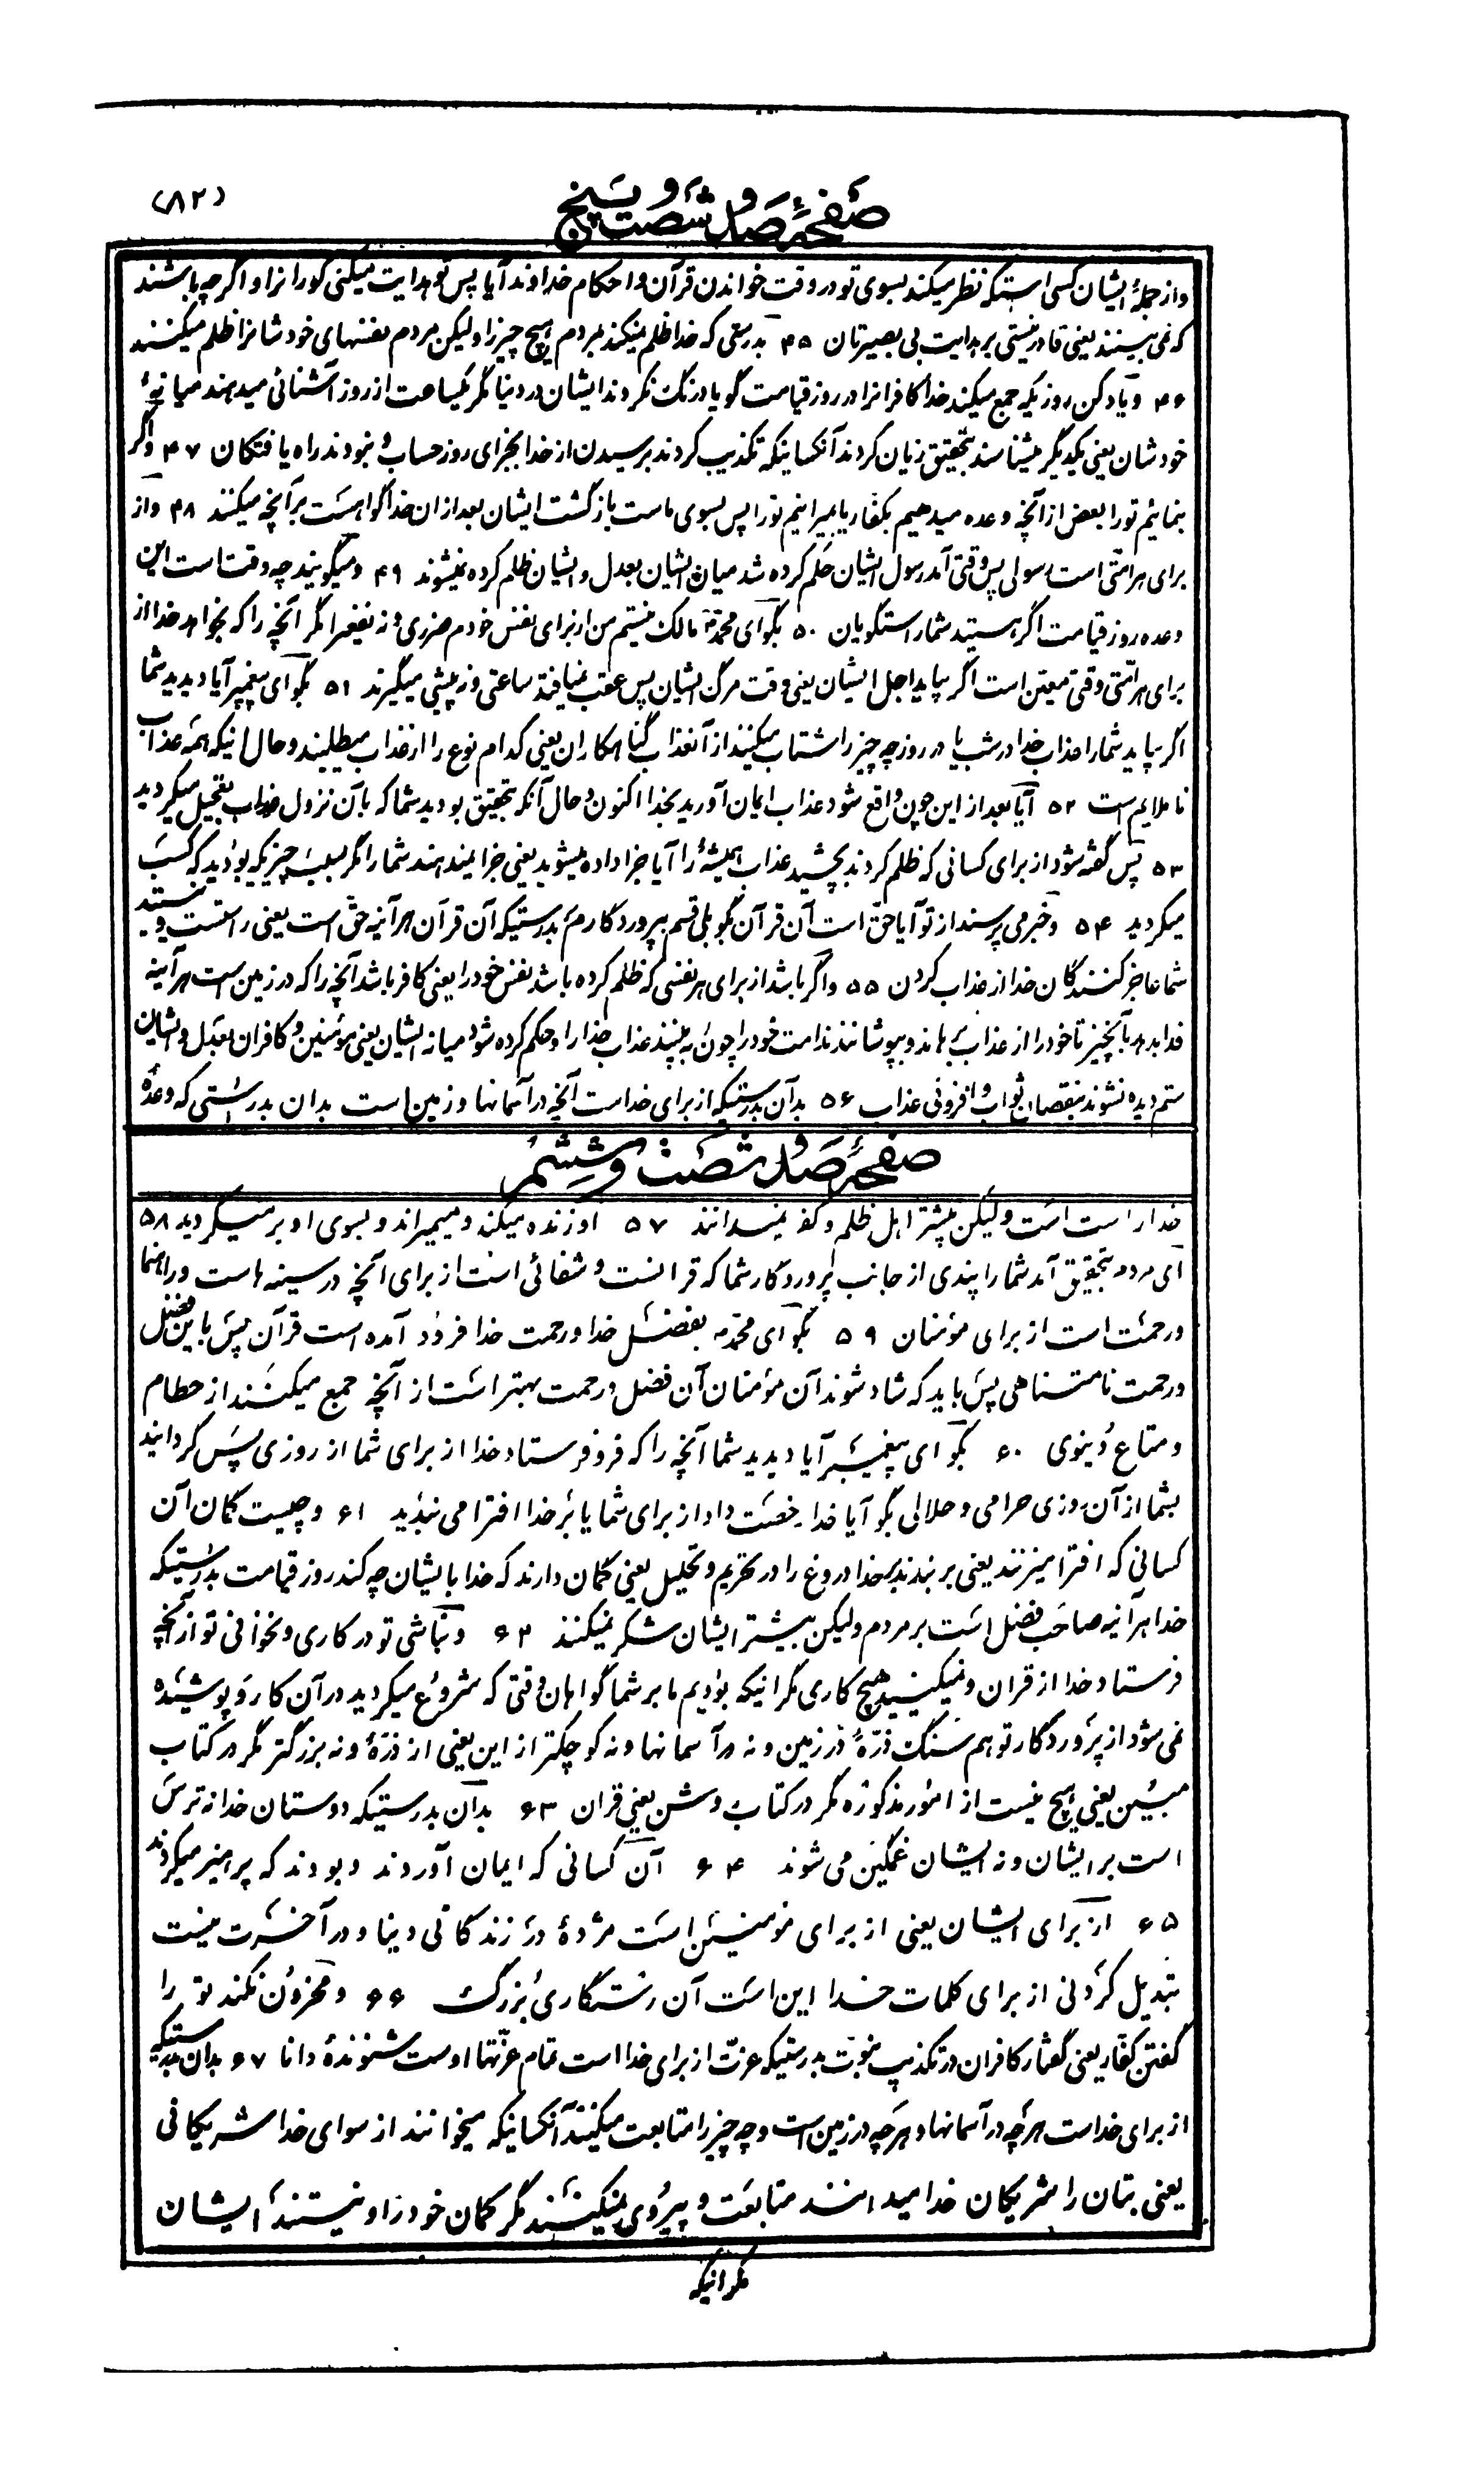 (۸۲)
صفحهٔ صد و شصت و پنج
و از جملهٔ ایشان کسی استکه نظر میکند بسوی تو در وقت خواندن قرآن و احکام خداوند آیا پس تو هدایت میکنی کورانرا و اگر چه باشند
که نمی بینند یعنی قادر نیستی بر هدایت بی بصیرتان ۴۵ بدرستی که خدا ظلم نمیکند بمردم هیچ چیز را ولیکن مردم بنفسهای خودشانرا ظلم میکنند
۴۶ و یاد کن روزیکه جمع میکند خدا کافرانرا در روز قیامت گویا درنگ نکردند ایشان در دنیا مگر یکساعت از روز آشنائی میدهند میانهٔ
خودشان یعنی یکدیگر میشناسند بتحقیق زیان کردند آنکسانیکه تکذیب کردند برسیدن از خدا بجزای روز حساب و نبودند راه یافتگان ۴۷ و اگر
بنمائیم تو را بعض از آنچه وعده میدهیم بکفار یا بمیرانیم تو را پس بسوی ماست بازگشت ایشان بعد از ان خدا گواهست بر آنچه میکنند ۴۸ و از
برای هر امتی است رسولی پس وقتی آمد رسول ایشان حکم کرده شد میان ایشان بعدل و ایشان ظلم کرده نمیشوند ۴۹ و میگویند چه وقت است این
وعده روز قیامت اگر هستید شما راستگویان ۵۰ بگو ای محمد مالک نیستم من از برای نفس خودم ضرری و نه نفعی مگر آنچه را که بخواهد خدا از
برای هر امتی وقتی معین است اگر بیاید اجل ایشان یعنی وقت مرگ ایشان پس عقب نیافتد ساعتی و نه پیشی میگیرند ۵۱ بگو ای پیغمبر آیا دیدید شما
اگر بیاید شما را عذاب خدا در شب یا در روز چه چیز را شتاب میکنند از آنعذاب گناهکاران یعنی کدام نوع را از عذاب میطلبند و حال انیکه همه عذاب
ناملایم است ۵۲ آیا بعد از این چون واقع شود عذاب ایمان آورید بخدا اکنون و حال آنکه بتحقیق بودید شما که بآن نزول عذاب تعجیل میکردید
۵۳ پس گفته شود از برای کسانی که ظلم کردند بچشید عذاب همیشهٔ را آیا جزا داده میشوید یعنی جزا نمیدهند شما را مگر بسبب چیزیکه بودید که کسب
میکردید ۵۴ و خبر می پرسند از تو آیا حق است آن قرآن بگو بلی قسم بپروردگارم بدرستیکه آن قرآن هر آنیه حق است یعنی راستست و نیستند
شما عاجز کنندگان خدا از عذاب کردن ۵۵ و اگر باشد از برای هر نفسی که ظلم کرده باشد نفس خود را یعنی کافر باشد آنچه را که در زمین است هر آینه
فدا بدهد بآنچیز تا خود را از عذاب برهاند و بپوشانند ندامت خود را چون به بینند عذاب خدا را و حکم کرده شود میانه ایشان یعنی مؤمنین و کافران بعدل و ایشان
ستم دیده نشوند بنقصان ثواب و افزونی عذاب ۵۶ بدآن بدرستیکه از برای خداست آنچه در آسمانها و زمین است بدان بدرستی که وعدهٔ
صفحهٔ صد و شصت و ششم
خدا راست است ولیکن بیشتر اهل ظلم و کفر نمیدانند ۵۷ او زنده میکند و میمیراند و بسوی او برمیگردید ۵۸
ای مردم بتحقیق آمد شما را پندی از جانب پروردگار شما که قرانست و شفائی است از برای آنچه در سینه هاست و راهنما
و رحمت است از برای مؤمنان ۵۹ بگو ای محمد بفضل خدا و رحمت خدا فرود آمده است قرآن پس باین فضل
و رحمت نامتناهی پس باید که شاد شوند آن مؤمنان آن فضل و رحمت بهتر است از آنچه جمع میکنند از حطام
و متاع دنیوی ۶۰ بگو ای پیغمبر آیا دیدید شما آنچه را که فرو فرستاد خدا از برای شما از روزی پس گردانید
بشما از آن روزی حرامی و حلالی بگو آیا خدا رخصت داد از برای شما یا بر خدا افترا می بندید ۶۱ و چیست گمان آن
کسانی که افترا میزنند یعنی بربندند بر خدا دروغ را در تحریم و تحلیل یعنی گمان دارند که خدا با ایشان چه کند روز قیامت بدرستیکه
خدا هر آنیه صاحب فضل است بر مردم ولیکن بیشتر ایشان شکر نمیکنند ۶۲ و نباشی تو در کاری و نخوانی تو از آنچه
فرستاد خدا از قران و نمیکنید هیچ کاری مگر انیکه بودیم ما بر شما گواهان وقتی که شروع میکردید در آن کار و پوشیده
نمی شود از پروردگار تو هم سنگ ذرّهٔ در زمین و نه در آسمانها و نه کوچکتر از این یعنی از ذرّهٔ و نه بزرگتر مگر در کتاب
مبین یعنی هیچ نیست از امور مذکوره مگر در کتاب روشن یعنی قران ۶۳ بدآن بدرستیکه دوستان خدا نه ترس
است بر ایشان و نه ایشان غمگین می شوند ۶۴ آن کسانی که ایمان آوردند و بودند که پرهیز میکردند
۶۵ از برای ایشان یعنی از برای مؤمنین است مژدهٔ در زندگانی دینا و در آخرت نیست
تبدیل کردنی از برای کلمات خدا این است آن رستگاری بزرگ ۶۶ و محزون نکند تو را
گفتن کفار یعنی گفتار کافران در تکذیب نبوت بدرستیکه عزّت از برای خدا است تمام عزّتها اوست شنوندهٔ دانا ۶۷ بدان بدرستیکه
از برای خداست هر چه در آسمانها و هر چه در زمین است و چه چیز را متابعت میکنند آنکسانیکه میخوانند از سوای خدا شریکانی
یعنی بتان را شریکان خدا میدانند متابعت و پیروی نمیکنند مگر گمان خود را و نیستند ایشان
مگر انیکه